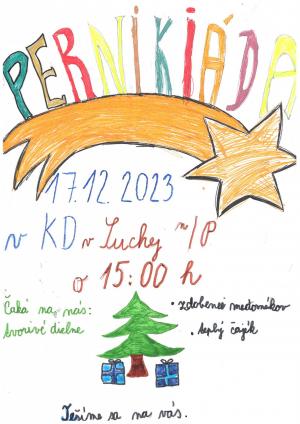 PERNIKIÁDA
17.12.2023
v KD v Suchej n/P
o 15:00 h
Čaká na nás:
tvorivé dielne
• zdobenie medovníkov
• teplý čajík
Tešíme sa na vás.